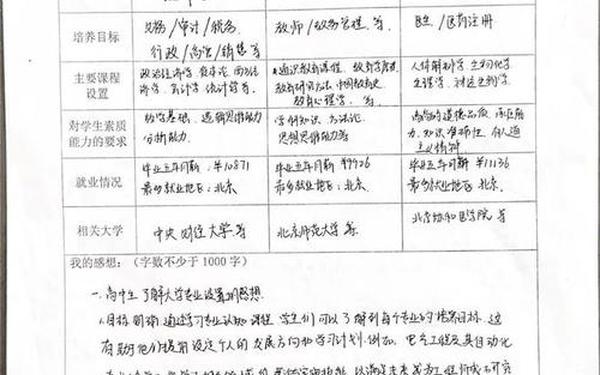 培养目标
财务/审计/税务
行政/高管/销售等
教师/教务管理等
医生/医药注册
主要课程
设置
政治经济学、资本论、西方经
济学、会计学、统计学等
通识教育课程、教育学原理
教育研究方法、中国教育史
教育心理学、等
人体解剖学、生物化学
生理学、
对学生素质
能力的要求
数学基础、逻辑思维能力
分析能力
学科知识、方法论
思想思维能力等
高尚的道德品质、
力、知识准确性、
主义精神
就业情况
毕业五年月薪:¥10871
最多就业地区:北京
毕业五年月薪¥9926
最多就业地区:北京
毕业五年月薪¥11136
最多就业地区:北京
相关大学
中央财经大学等
北京师范大学等
北京协和医学院等
我的感想:(字数不少于1000字)
一.高中生了解大学专业设置的感想
1.目标明确:通过学习专业认知课程,学生们可以了解到每个专业的培养目标,这
有助于他们提前设定个人的发展方向和学习计划.例如,电气工程及其自动化